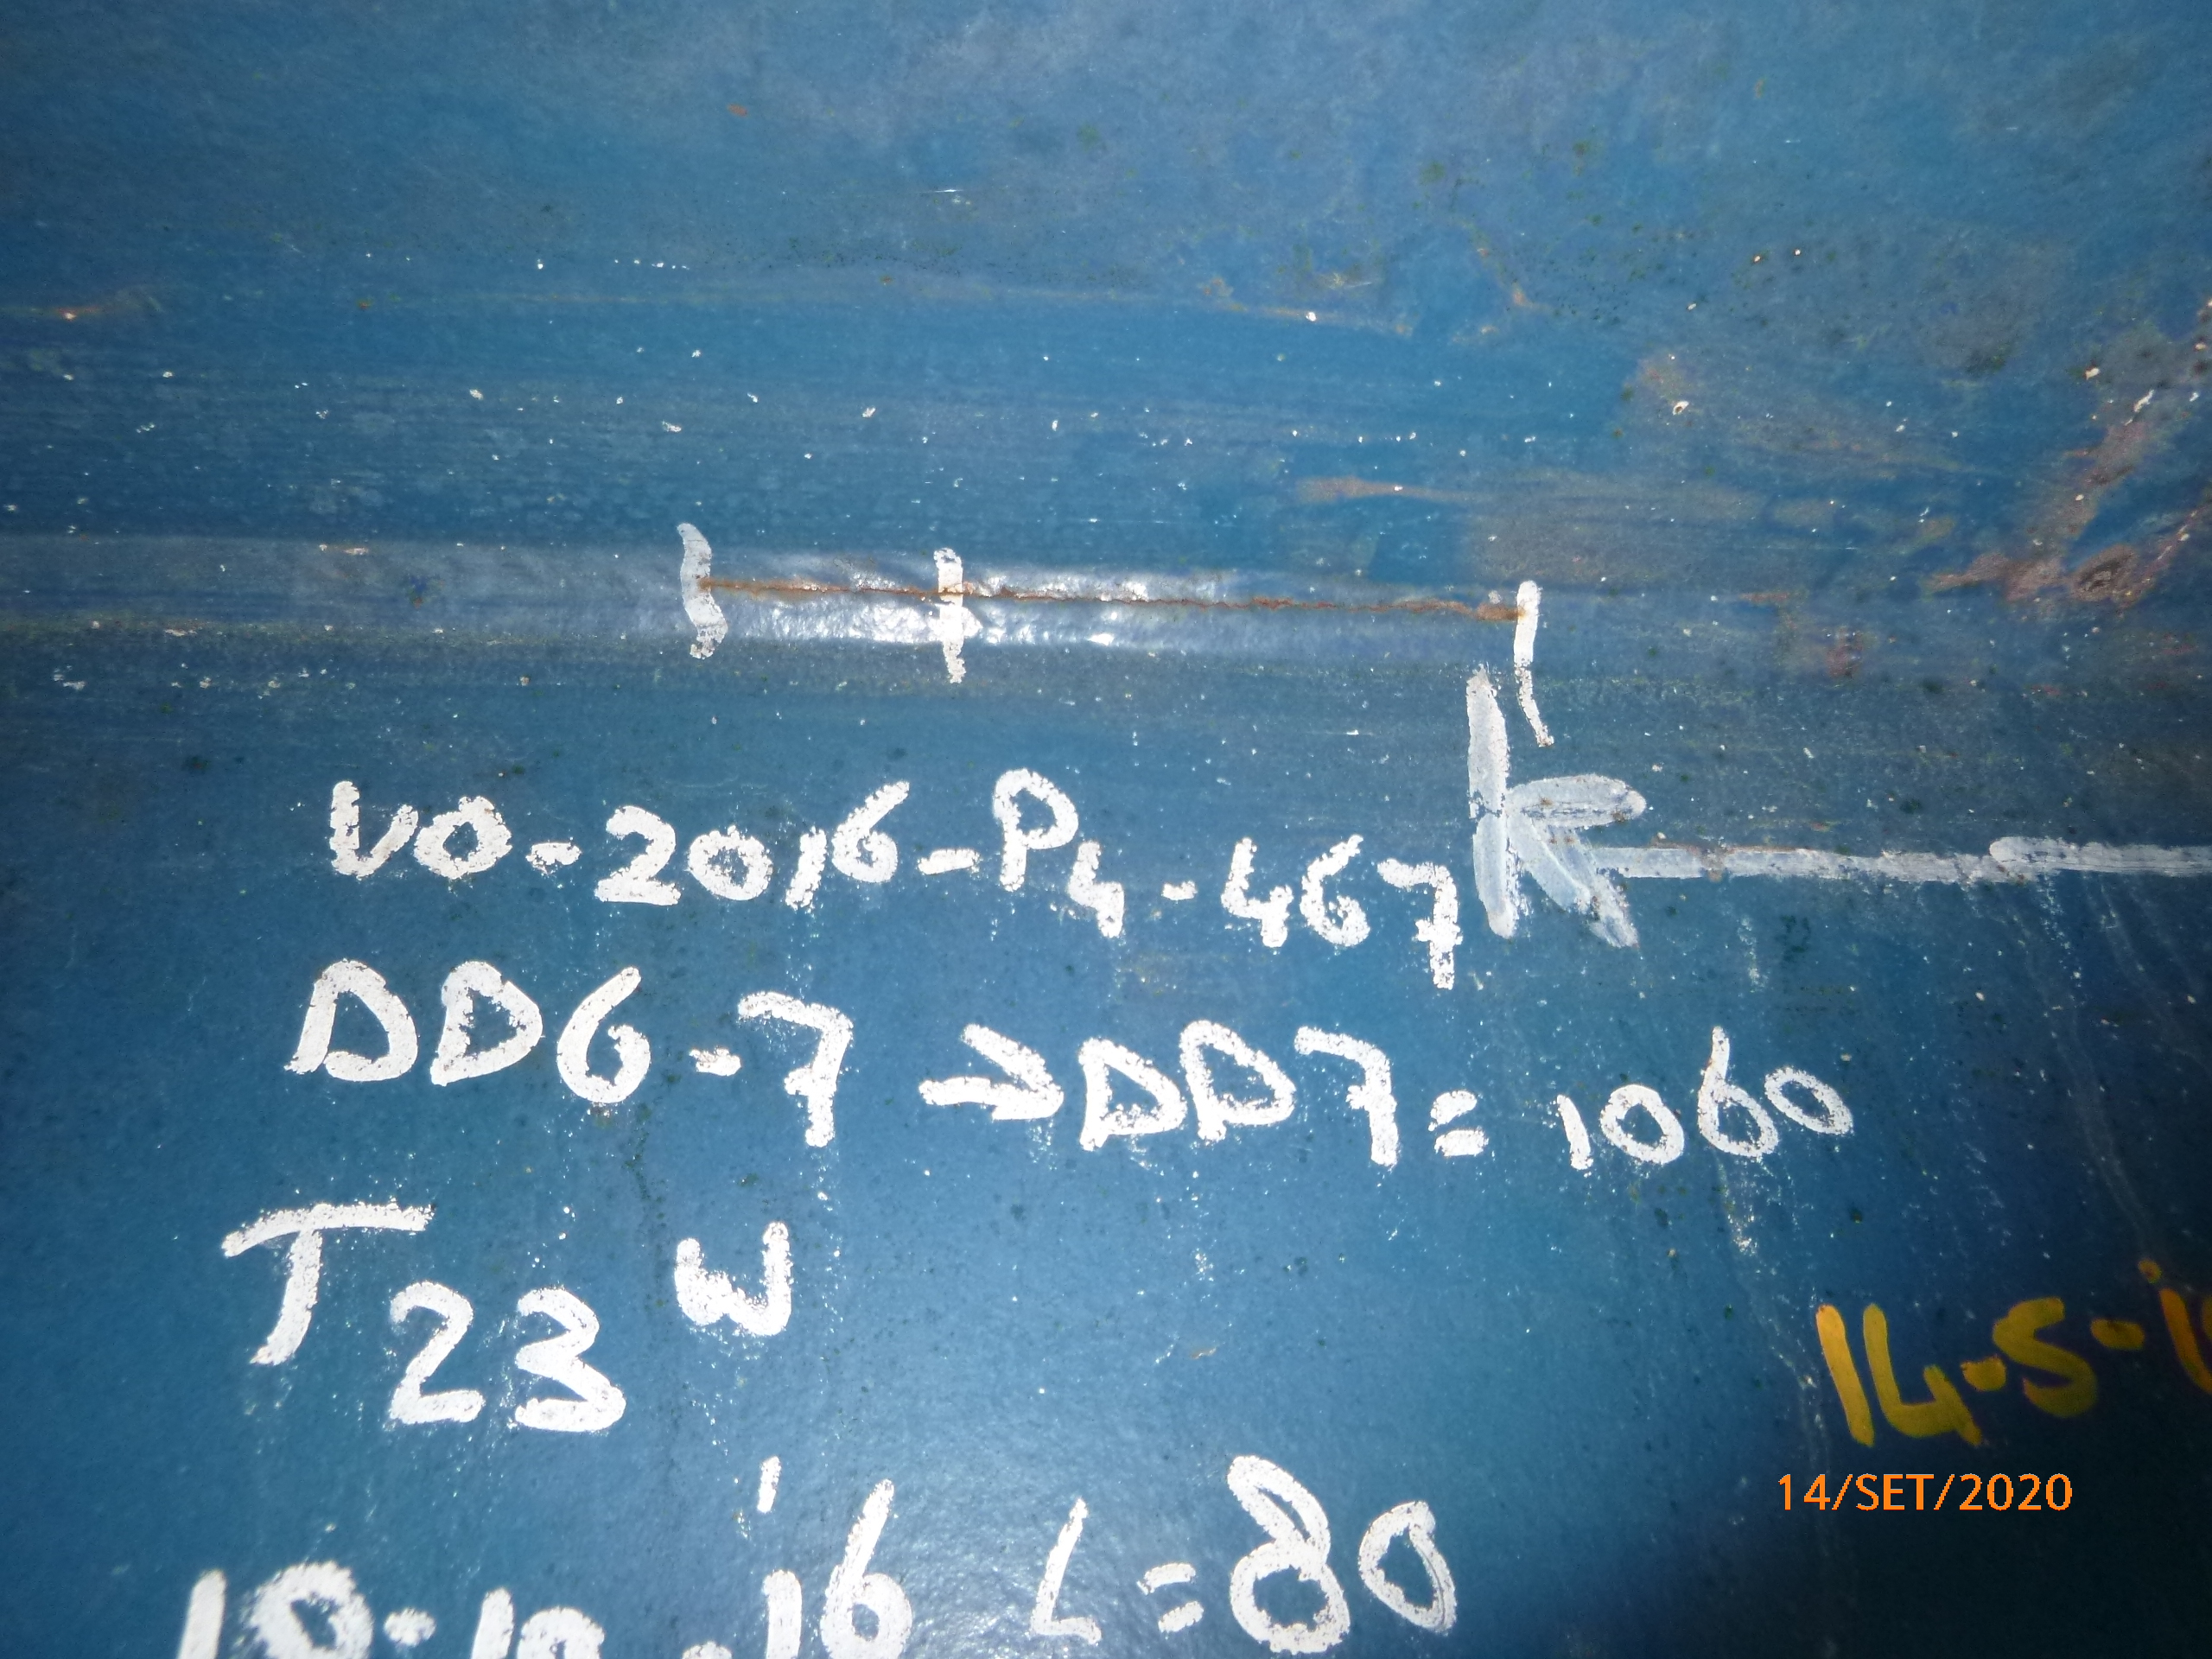 VO-2016-P4-467
DD6-7 → DD7=1060
T23 W
L=80
14-5-
14/SET/2020